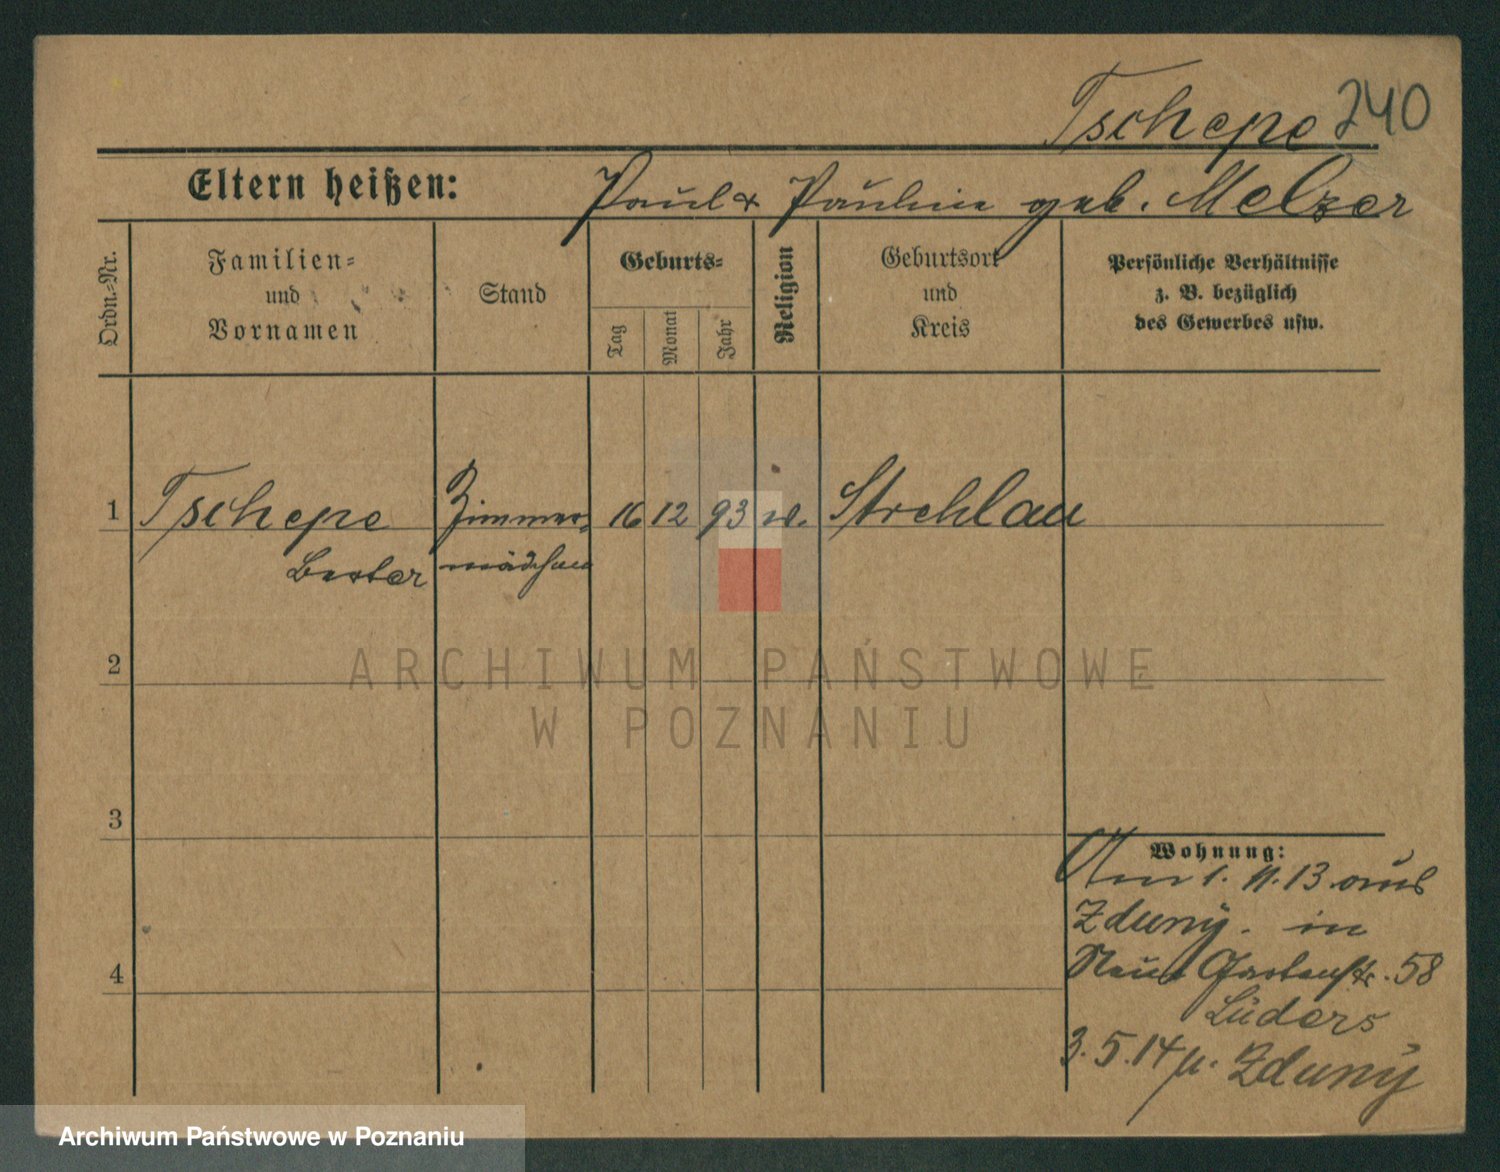 Tschepe 240
Eltern heißen: Paul & Pauline geb. Melzer
Ordn.-Nr.
Familien-
und
Vornamen
Stand
Geburts-
Tag
Monat
Jahr
Religion
Geburtsort
und
Kreis
Persönliche Verhältnisse
z. B. bezüglich
des Gewerbes usw.
1 Tschepe Zimmer- 16 12 93 Strehlau
mädchen
2
ARCHIWUM PAŃSTWOWE
W POZNANIU
3
Wohnung:
Am 1. 11. 13 aus
Zduny. in
Neue Gartenstr. 58
Lüders
4
3. 5. 14 n. Zduny
Archiwum Państwowe w Poznaniu